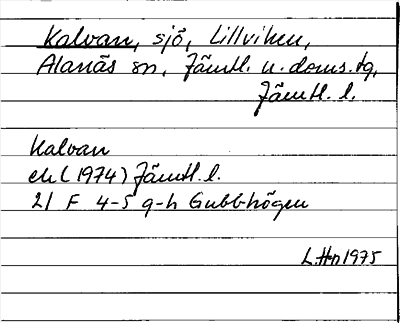 Kalvan, sjö, Lillviken,
Alanäs sn, Jämtl. n. doms.tg,
Jämtl. l.
Kalvan
ek (1974) Jämtl. l.
21 F 4-5 g-h Gubbhögen
L.Hn 1975